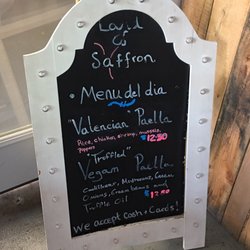 &
Saffron
Menu del dia
"Valencian" Paella
Rice, chicken, shrimp, mussels,
Peppers $12.50
"Truffled"
Vegan Paella
Cauliflower, Mushrooms, Carrots,
Onions, Green beans and
Truffle Oil $12.50
We accept Cash + Cards!